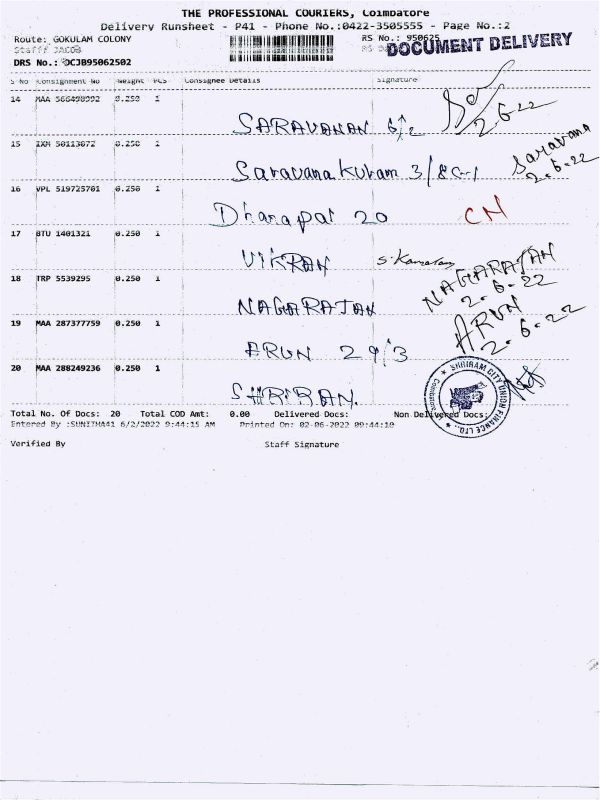 THE PROFESSIONAL COURIERS, Coimbatore
Delivery Runsheet - P41 - Phone No.:0422-3505555 - Page No.:2
Route: GOKULAM COLONY
RS No.: 950625
DOCUMENT DELIVERY
Staff JACOB
DRS No.: DCJB95062502
S No Consignment No Weight PCS Consignee Details Signature
14 MAA 566498992 0.250 1
SARAVANAN 6/2
2.6.22
15 IXM 50113072 0.250 1
Saravana Kumar 3/8
Saravana
2.6.22
16 VPL 519725701 0.250 1
Dhanapal 20
CN
17 BTU 1401321 0.250 1
VIKRAN
NAGARAJAN
2.6.22
18 TRP 5539295 0.250 1
NAGARAJAN
19 MAA 287377759 0.250 1
ARUN 29/3
ARUN
2.6.22
20 MAA 288249236 0.250 1
SHRIRAM CITY UNION FINANCE LTD.
Total No. Of Docs: 20 Total COD Amt: 0.00 Delivered Docs: Non Delivered Docs:
Entered By :SUNITHA41 6/2/2022 9:44:15 AM Printed On: 02-06-2022 09:44:10
Verified By Staff Signature